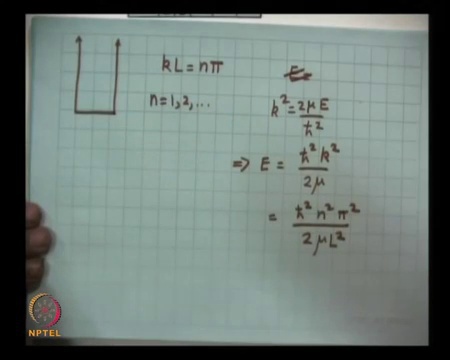 kL = nπ
n = 1, 2, ...
k² = 2μE / ħ²
⇒ E = ħ² k² / 2μ
= ħ² n² π² / 2μL²
NPTEL